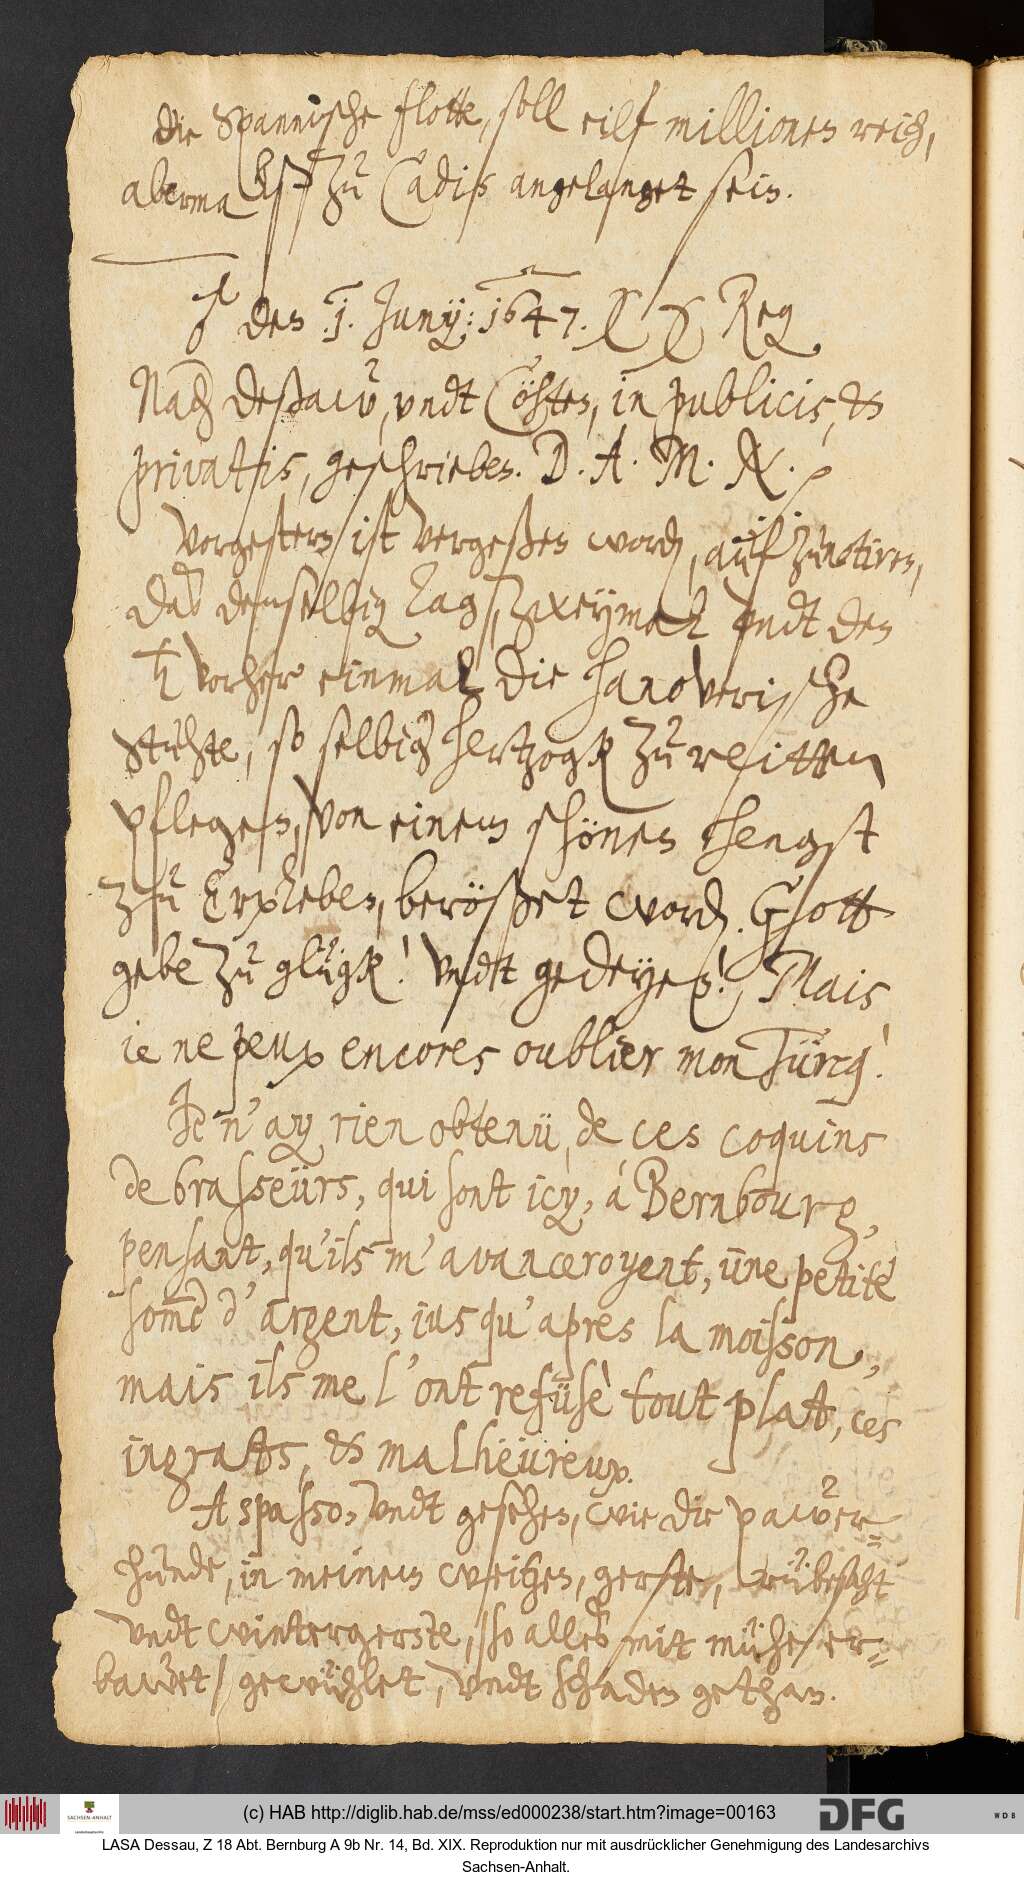 Die Spannische flotte, soll eilf millionen reich,
abermalß zu Cadis angelanget sein.
den 1. Junÿ: 1647. Reg
Nach Deßaw, vndt Cöhten, in publicis, &
privatis, geschrieben. D. A. M. N.
Vorgestern ist vergeßen word, auf zu notiren,
daß demselbig tags, zweymal vndt den
♄ vorher einmal die Hanoverische
Stuhte, so selbig hertzogk zu reitten
pflegen, von einem schönen hengst
zu Erxleben, berößet word. Gott
gebe zu glügk! vndt gedeyen! Mais
ie ne peux encores oublier mon Türcq!
Je n'ay rien obtenü, de ces coquins
de brasseürs, qui sont icy, á Bernbourg,
pensant, qu'ils m'avanceroyent, üne petite
somē d'argent, iusqu'apres la moisson,
mais ils me l'ont refüsè tout plat, ces
ingrats, & malheüreux.
A spasso, vndt gesehen, wie die pawer=
hunde, in meinem weitzen, gerste, rübesaht
vndt wintergerste, so alles mit mühe er=
bawet, gewühlet, vndt schaden gethan.
(c) HAB http://diglib.hab.de/mss/ed000238/start.htm?image=00163
SACHSEN-ANHALT
DFG
WDB
LASA Dessau, Z 18 Abt. Bernburg A 9b Nr. 14, Bd. XIX. Reproduktion nur mit ausdrücklicher Genehmigung des Landesarchivs
Sachsen-Anhalt.